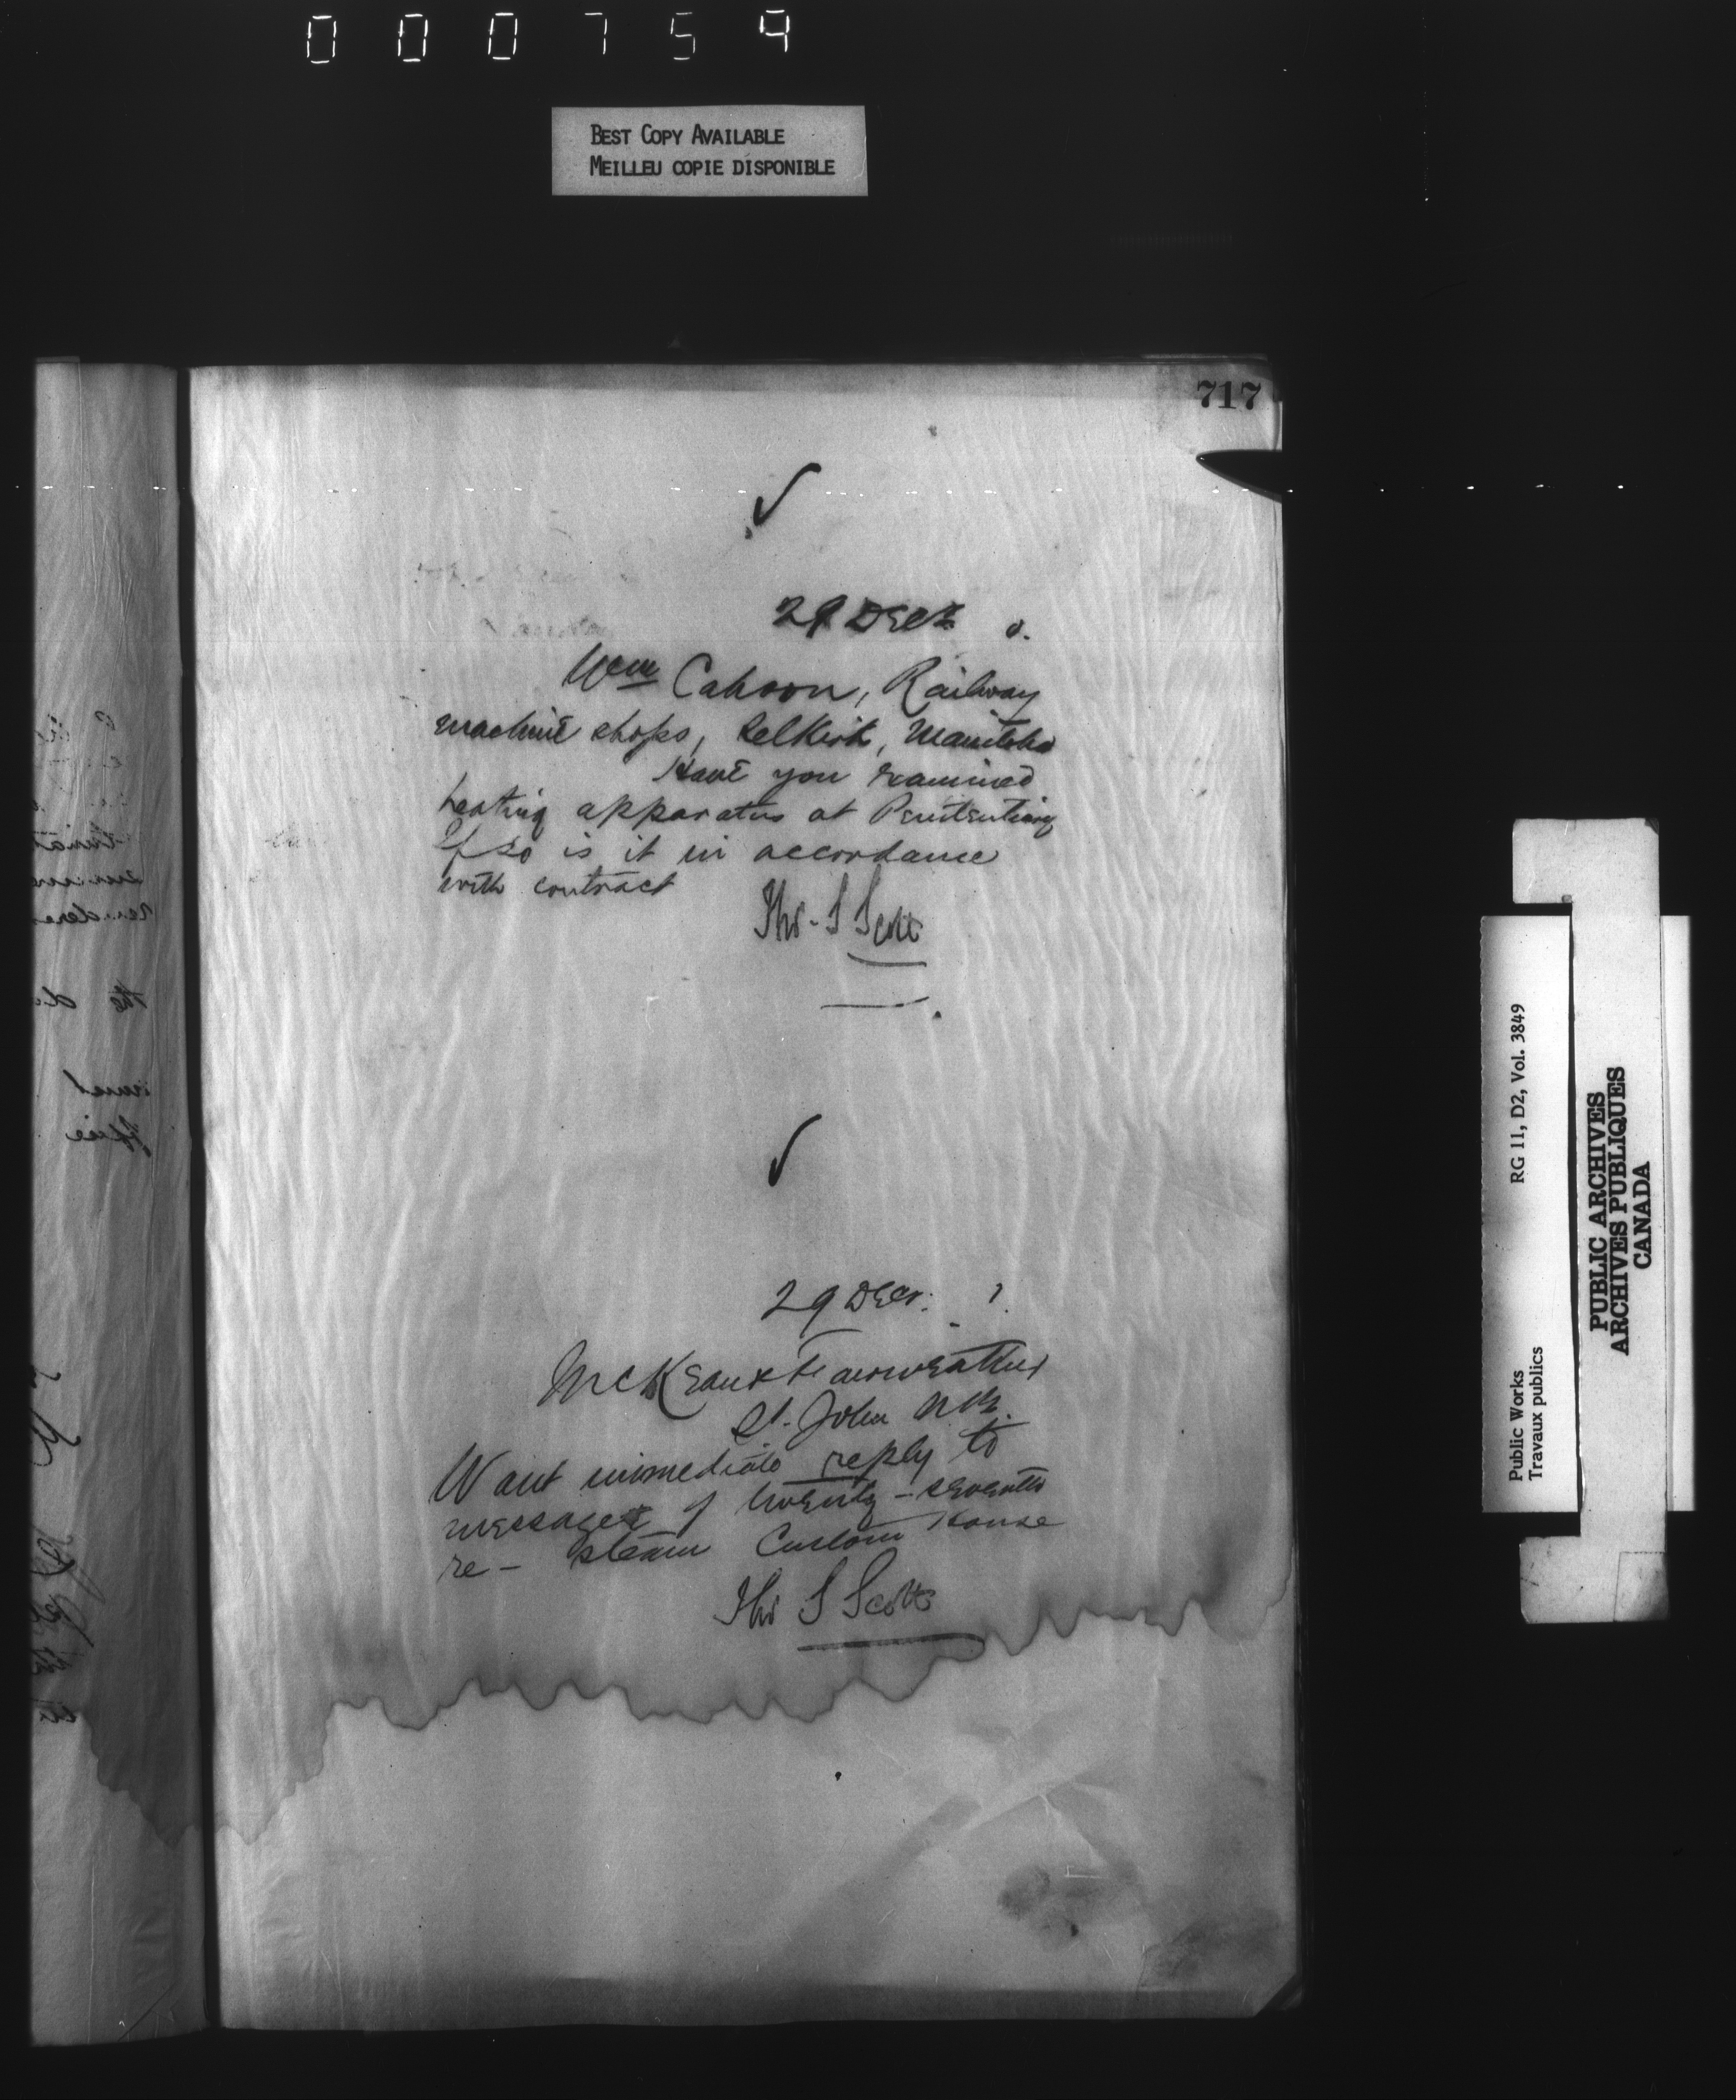 000759
BEST COPY AVAILABLE
MEILLEU COPIE DISPONIBLE
717
29 Decr
Wm Cahoon, Railway
machine shops, Selkirk, Manitoba
Have you examined
heating apparatus at Penitentiary
If so is it in accordance
with contract
Thos. S Scott
29 Decr.
McKean & Fairweather
St. John N.B.
Want immediate reply to
message of twenty-seventh
re - steam Custom House
Thos S Scott
Public Works RG 11, D2, Vol. 3849
Travaux publics
PUBLIC ARCHIVES
ARCHIVES PUBLIQUES
CANADA